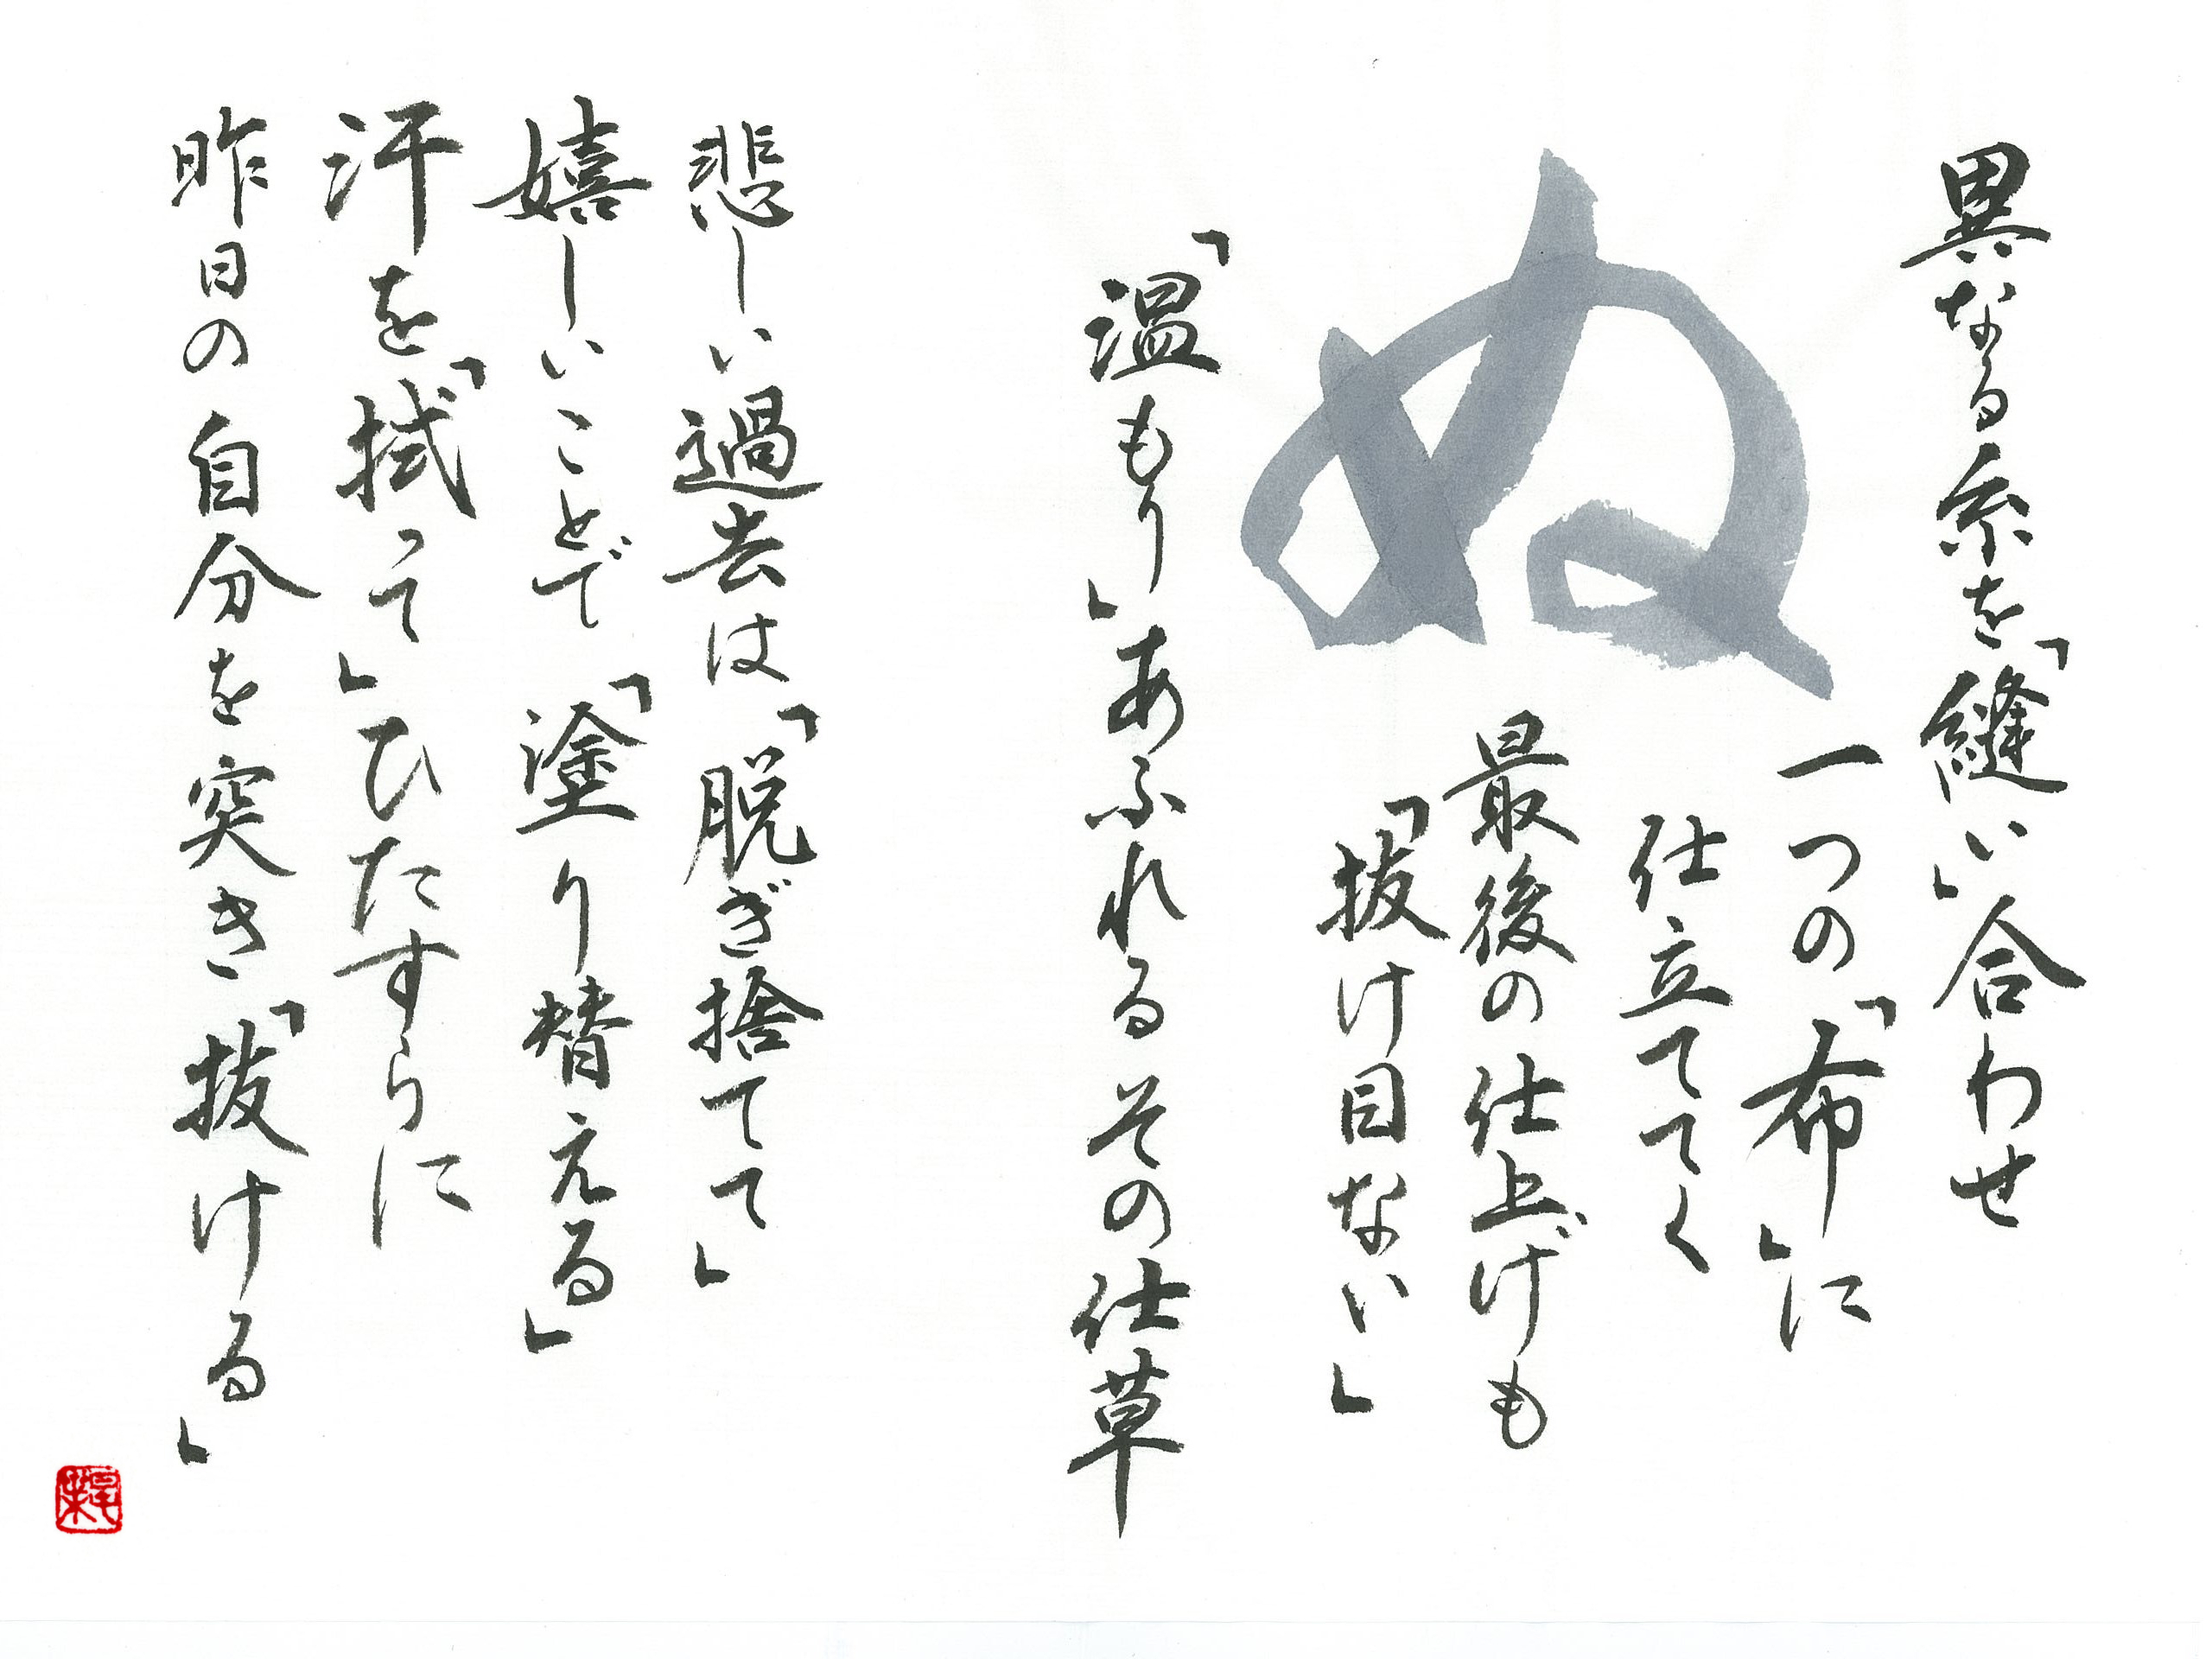 異なる糸を「縫い」合わせ
一つの「布」に
仕立ててく
最後の仕上げも
「抜け目ない」
「温もり」あふれるその仕草
ぬ
悲しい過去は「脱ぎ捨てて」
嬉しいことで「塗り替える」
汗を「拭って」ひたすらに
昨日の自分を突き「抜ける」